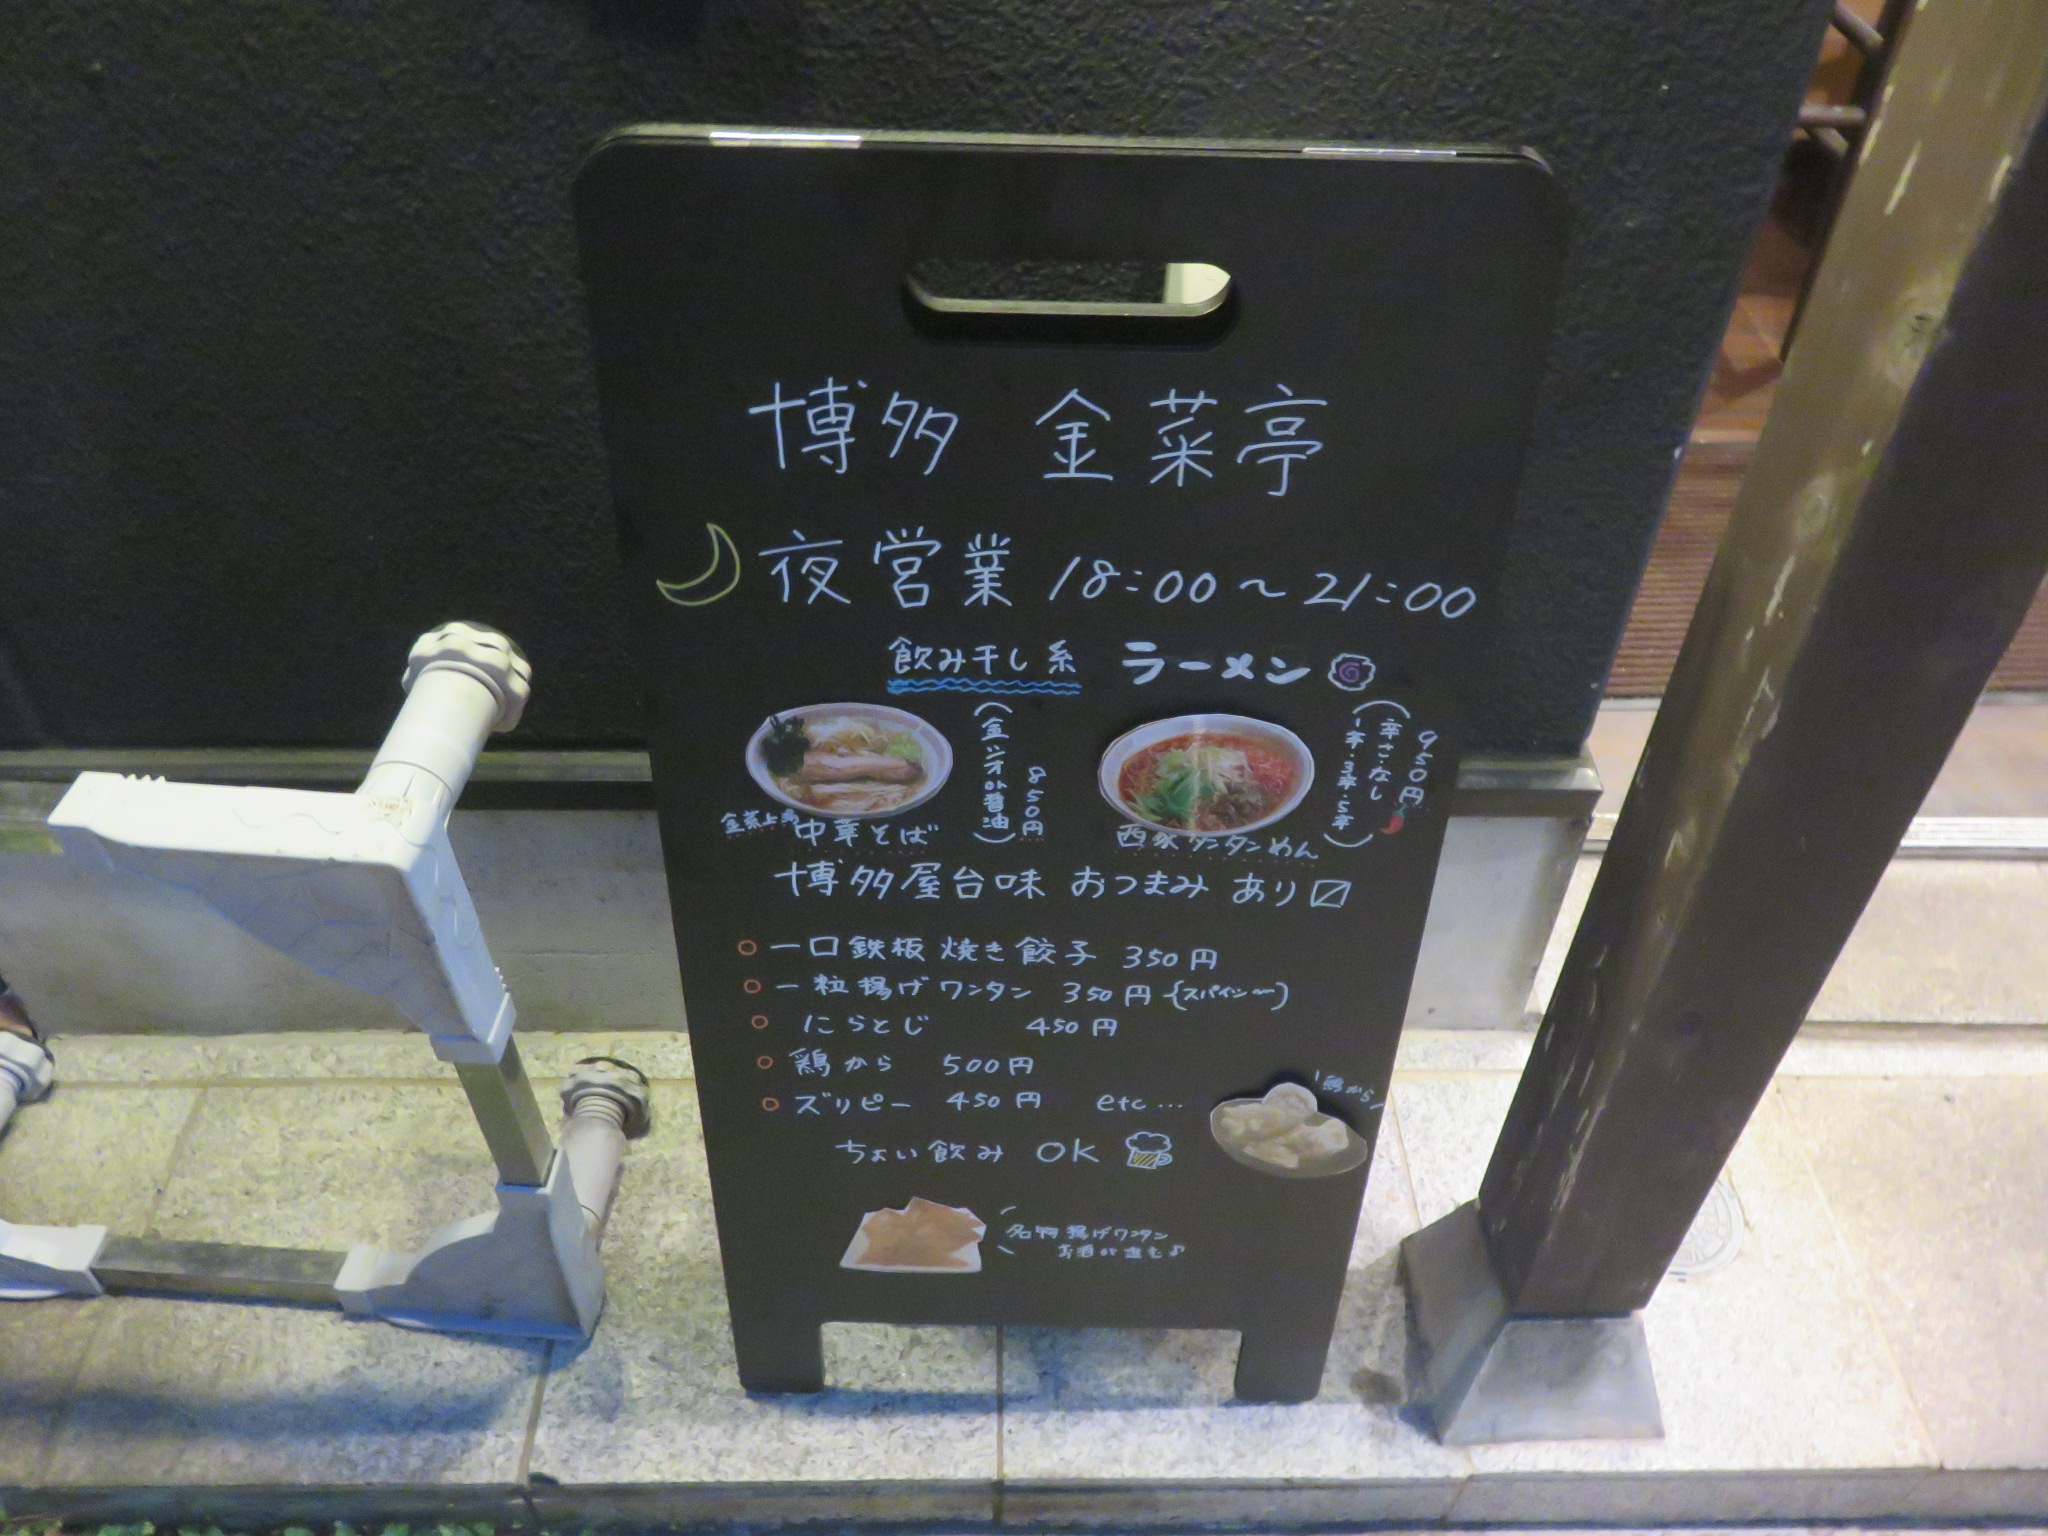 博多 金菜亭
夜営業 18:00～21:00
飲み干し系 ラーメン
(金ジオor醤油) 850円
中華そば
(辛さ・なし 1辛・3辛・5辛) 950円
タンタンめん
博多屋台味 おつまみ あり〼
○ 一口鉄板焼き餃子 350円
○ 一粒揚げワンタン 350円 (スパイシー)
○ にらとじ 450円
○ 鶏から 500円
○ ズリピー 450円 etc…
鶏から
ちょい飲み OK
名物 揚げワンタン
お酒が進む♪